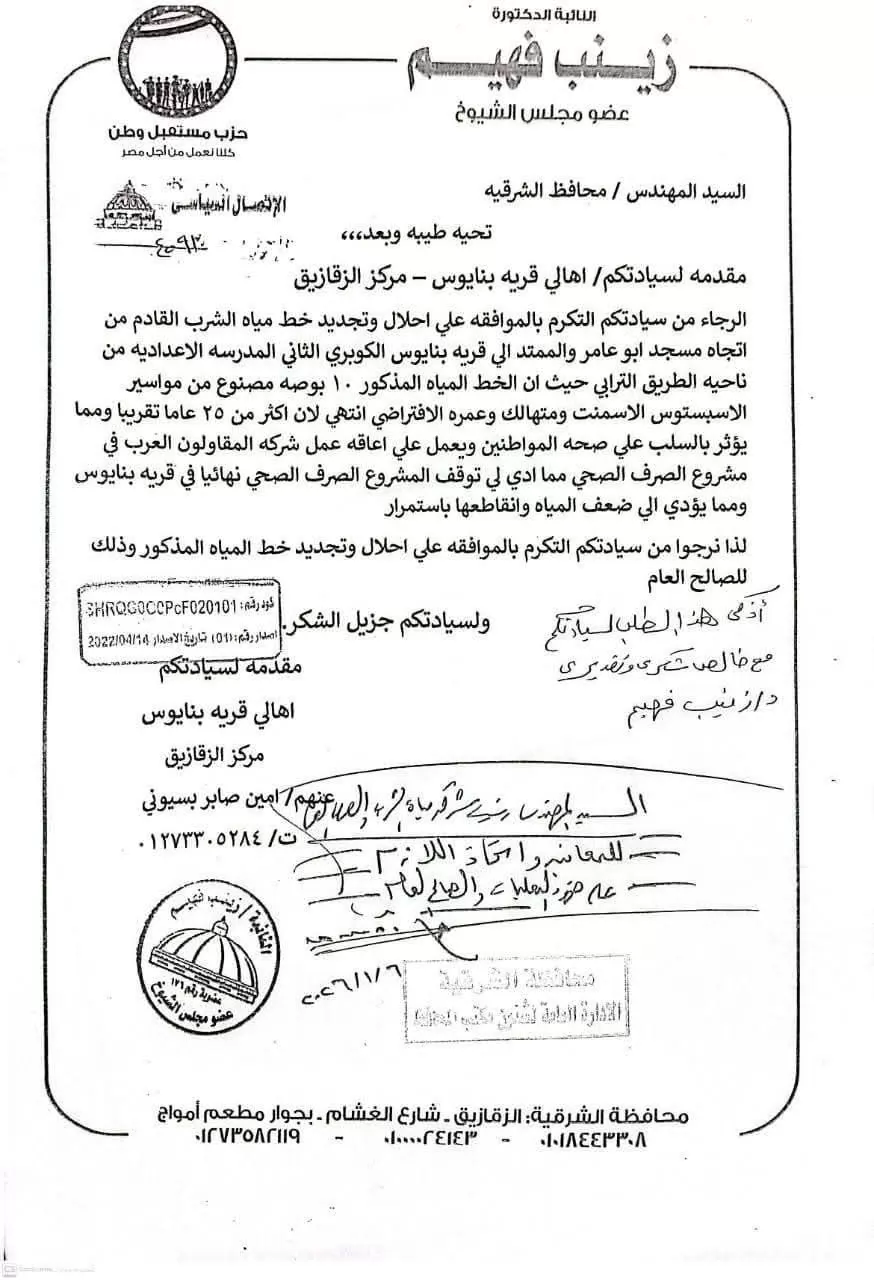 النائبة الدكتورة
زينب فهيم
عضو مجلس الشيوخ
حزب مستقبل وطن
كلنا نعمل من أجل مصر
السيد المهندس / محافظ الشرقيه
الإتصال السياسى
تحيه طيبه وبعد،،،
مقدمه لسيادتكم/ اهالي قريه بنايوس – مركز الزقازيق
الرجاء من سيادتكم التكرم بالموافقه علي احلال وتجديد خط مياه الشرب القادم من
اتجاه مسجد ابو عامر والممتد الي قريه بنايوس الكوبري الثاني المدرسه الاعداديه من
ناحيه الطريق الترابي حيث ان الخط المياه المذكور ١٠ بوصه مصنوع من مواسير
الاسبستوس الاسمنت ومتهالك وعمره الافتراضي انتهي لان اكثر من ٢٥ عاما تقريبا ومما
يؤثر بالسلب علي صحه المواطنين ويعمل علي اعاقه عمل شركه المقاولون العرب في
مشروع الصرف الصحي مما ادي لي توقف المشروع الصرف الصحي نهائيا في قريه بنايوس
ومما يؤدي الي ضعف المياه وانقاطعها باستمرار
لذا نرجوا من سيادتكم التكرم بالموافقه علي احلال وتجديد خط المياه المذكور وذلك
للصالح العام
كود رقم: SHRQG0C0PcF020101
اصدار رقم: (01) تاريخ الاصدار 2022/04/14
ولسيادتكم جزيل الشكر.
أزكى هذا الطلب لسيادتكم
مع خالص شكرى وتقديرى
د/ زينب فهيم
مقدمه لسيادتكم
اهالي قريه بنايوس
مركز الزقازيق
عنهم/ امين صابر بسيوني
ت/ ٠١٢٧٣٣٠٥٢٨٤
السيد المهندس رئيس شركة مياه الشرب والصرف
للمعاينه واتخاذ اللازم
على ضوء التعليمات والصالح العام
٢٠٢٦/١/٦
النائبة / زينب فهيم
عضوية رقم ١٢٦
عضو مجلس الشيوخ
محافظة الشرقية
الادارة العامة لشئون مكتب المحافظ
محافظة الشرقية: الزقازيق - شارع الغشام - بجوار مطعم أمواج
٠١٠١٨٤٤٣٣٠٨ - ٠١٠٠٠٠٢٤١٤٣ - ٠١٢٧٣٥٨٢١١٩